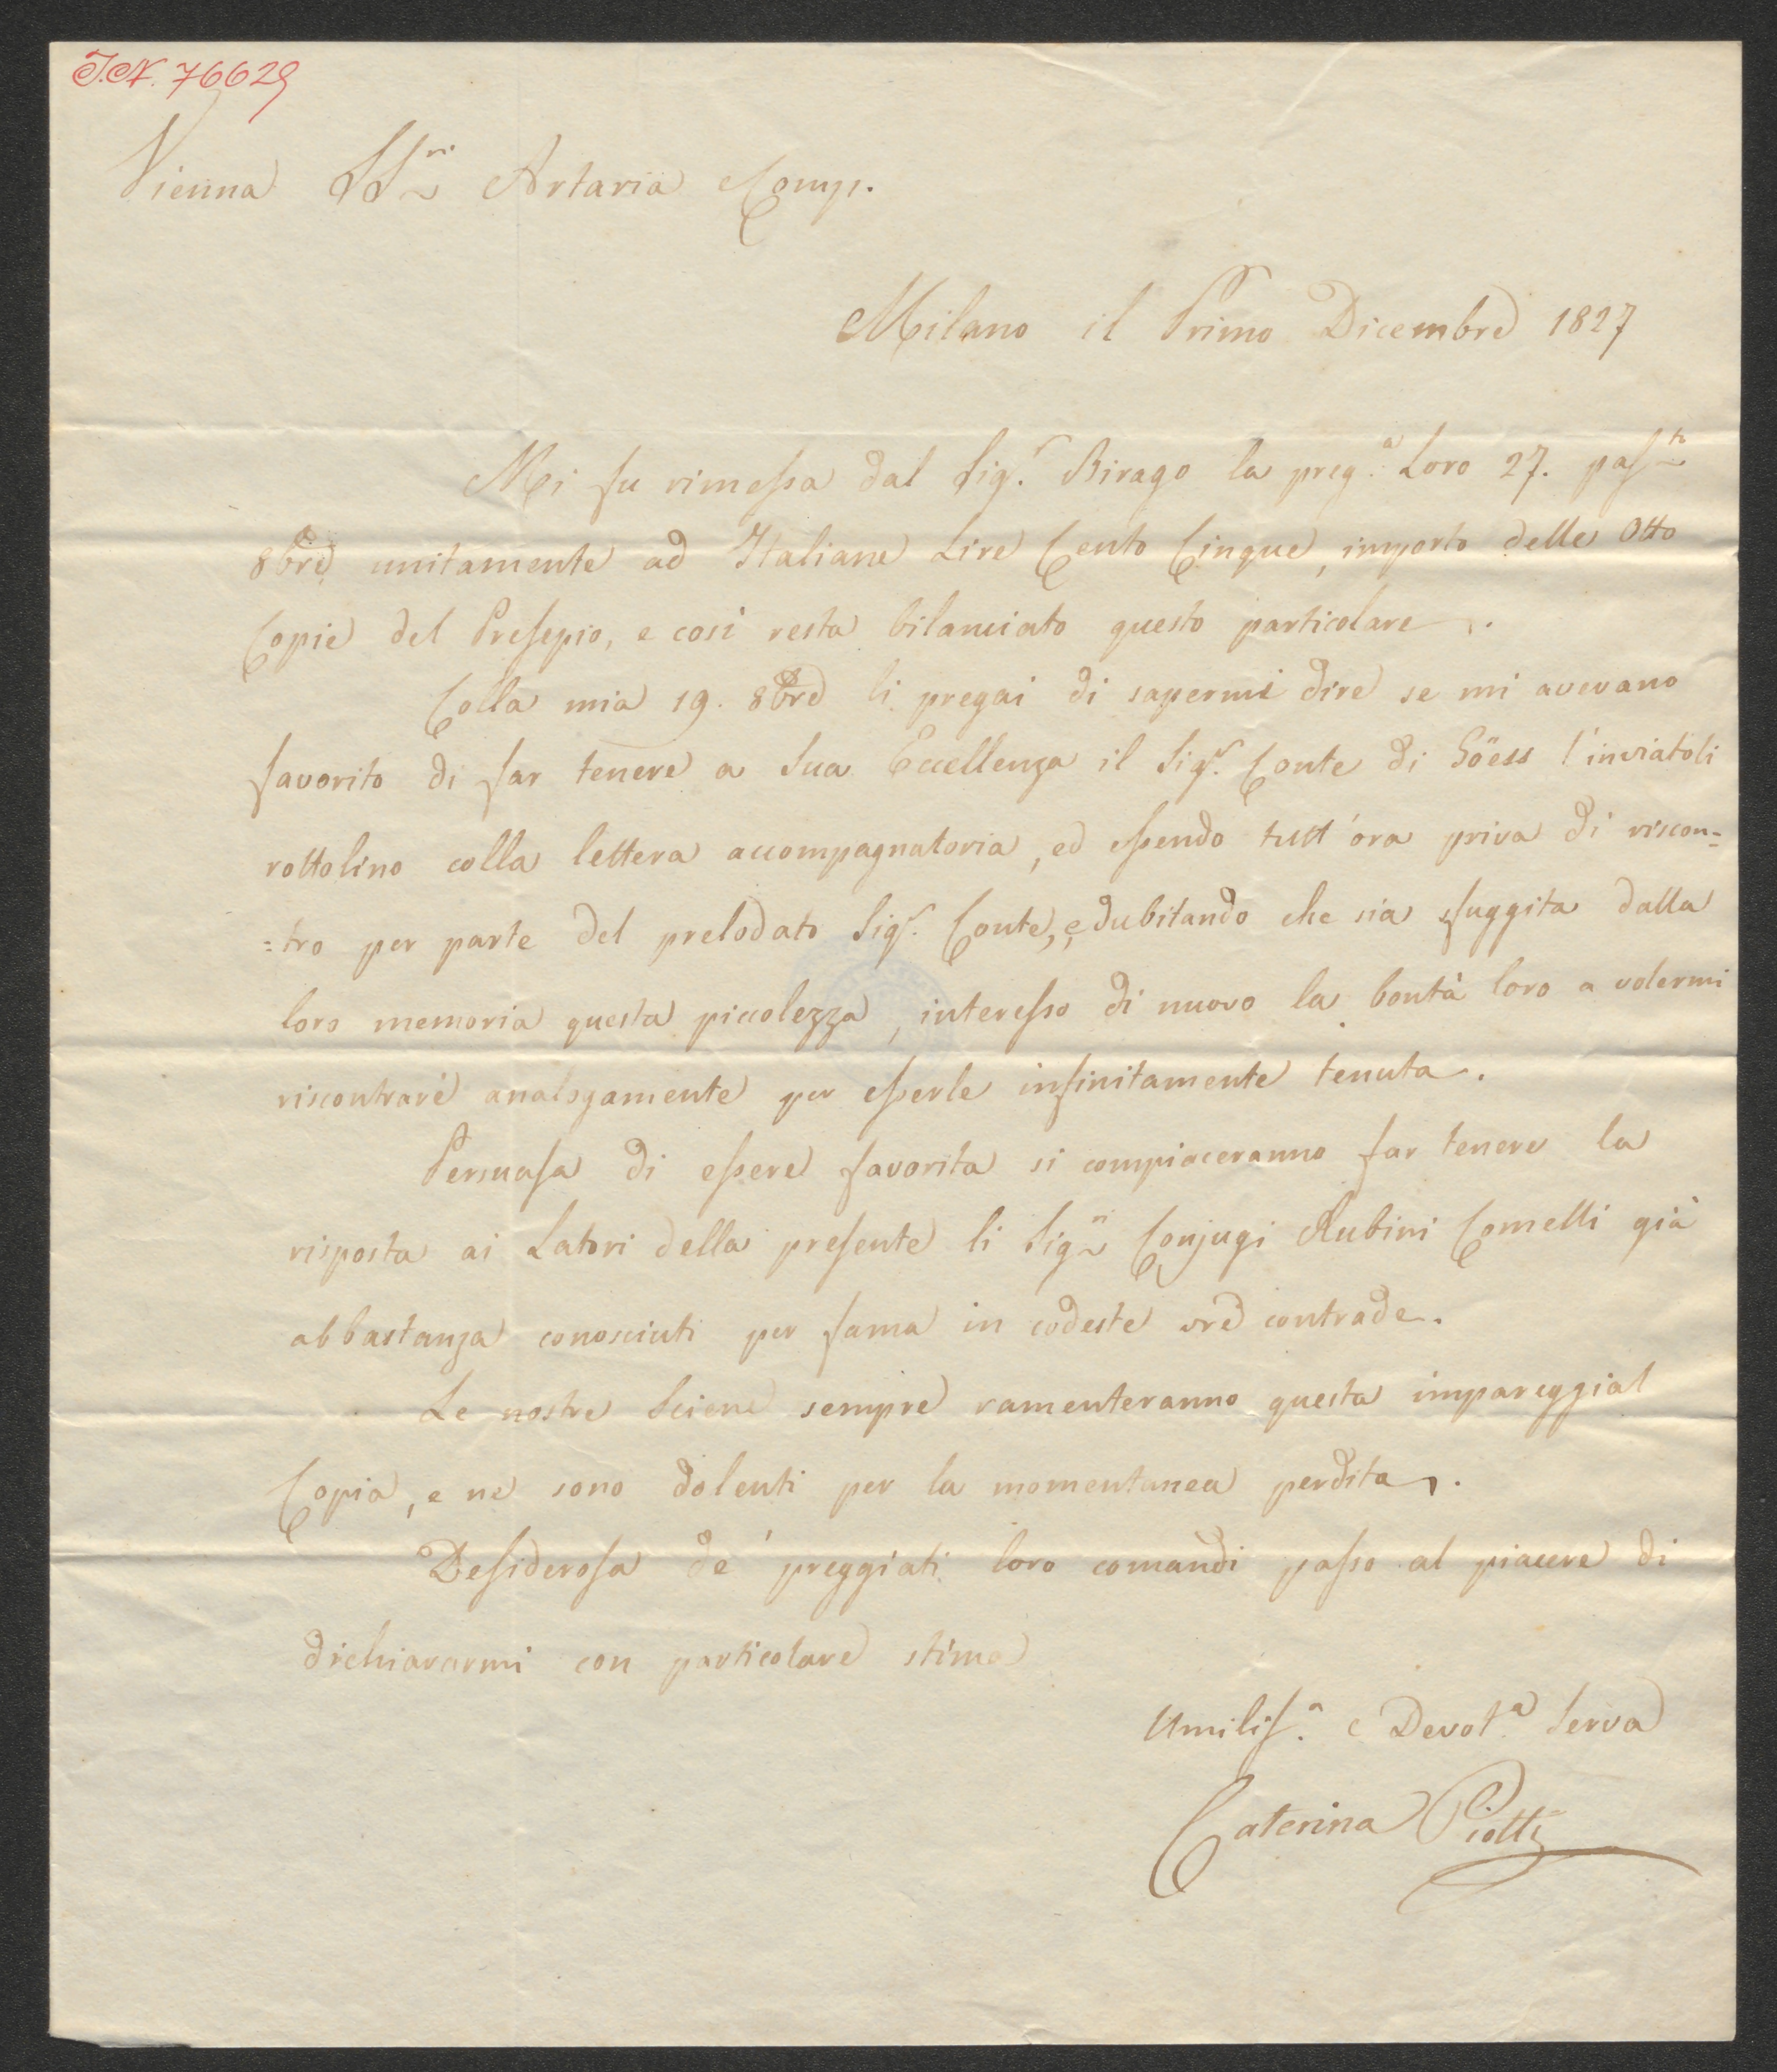 I.N. 76629
Vienna SS.ri Artaria Comp.
Milano il Primo Dicembre 1827
Mi fu rimessa dal Sig.r Birago la preg.a Loro 27. pass.to
8bre unitamente ad Italiane Lire Cento Cinque, importo delle Otto
Copie del Presepio, e così resta bilanciato questo particolare.
Colla mia 19. 8bre li pregai di sapermi dire se mi avevano
favorito di far tenere a Sua Eccellenza il Sig.r Conte di Göess l'inviatoli
rottolino colla lettera accompagnatoria, ed essendo tutt'ora priva di riscon=
=tro per parte del prelodato Sig.r Conte, e dubitando che sia sfuggita dalla
loro memoria questa piccolezza, interesso di nuovo la bontà loro a volermi
riscontrare analogamente per esserle infinitamente tenuta.
Persuasa di essere favorita si compiaceranno far tenere la
risposta ai Latori della presente li Sig.ri Conjugi Rubini Comelli già
abbastanza conosciuti per fama in codeste vre contrade.
Le nostre Sciene sempre ramenteranno questa impareggial
Copia, e ne sono dolenti per la momentanea perdita.
Desiderosa de' preggiati loro comandi passo al piacere di
dichiararmi con particolare stima
Umiliss.a e Devot.a Serva
Caterina Piotti